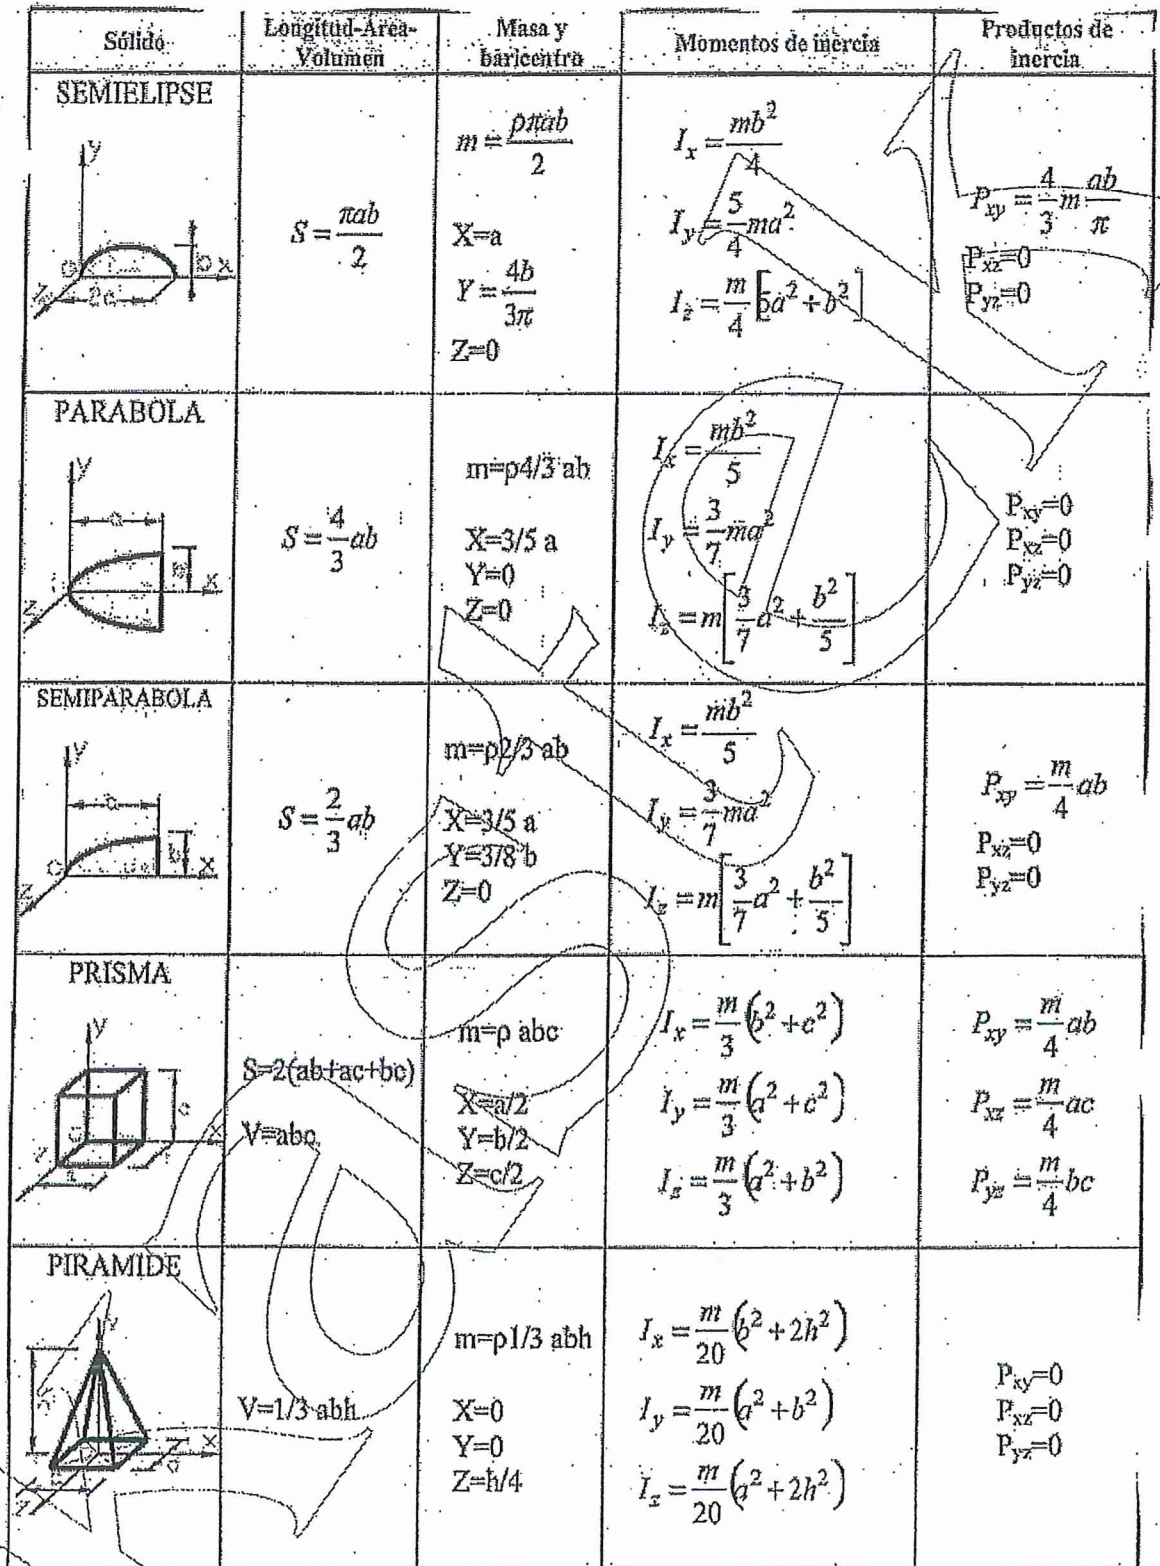 Sólido
Longitud-Area-Volumen
Masa y baricentro
Momentos de inercia
Productos de inercia
SEMIELIPSE
y
O
b
x
z
2a
S = πab/2
m = ρπab/2
X=a
Y = 4b/3π
Z=0
I_x = mb²/4
I_y = 5/4 ma²
I_z = m/4 [5a² + b²]
P_xy = 4/3 m ab/π
P_xz=0
P_yz=0
PARABOLA
y
a
b
x
z
S = 4/3 ab
m=ρ4/3 ab
X=3/5 a
Y=0
Z=0
I_x = mb²/5
I_y = 3/7 ma²
I_z = m[3/7 a² + b²/5]
P_xy=0
P_xz=0
P_yz=0
SEMIPARABOLA
y
a
b
O
x
z
S = 2/3 ab
m=ρ2/3 ab
X=3/5 a
Y=3/8 b
Z=0
I_x = mb²/5
I_y = 3/7 ma²
I_z = m[3/7 a² + b²/5]
P_xy = m/4 ab
P_xz=0
P_yz=0
PRISMA
y
c
x
S=2(ab+ac+bc)
V=abc
m=ρ abc
X=a/2
Y=b/2
Z=c/2
I_x = m/3 (b² + c²)
I_y = m/3 (a² + c²)
I_z = m/3 (a² + b²)
P_xy = m/4 ab
P_xz = m/4 ac
P_yz = m/4 bc
PIRAMIDE
y
h
x
z
V=1/3 abh
m=ρ1/3 abh
X=0
Y=0
Z=h/4
I_x = m/20 (b² + 2h²)
I_y = m/20 (a² + b²)
I_z = m/20 (a² + 2h²)
P_xy=0
P_xz=0
P_yz=0